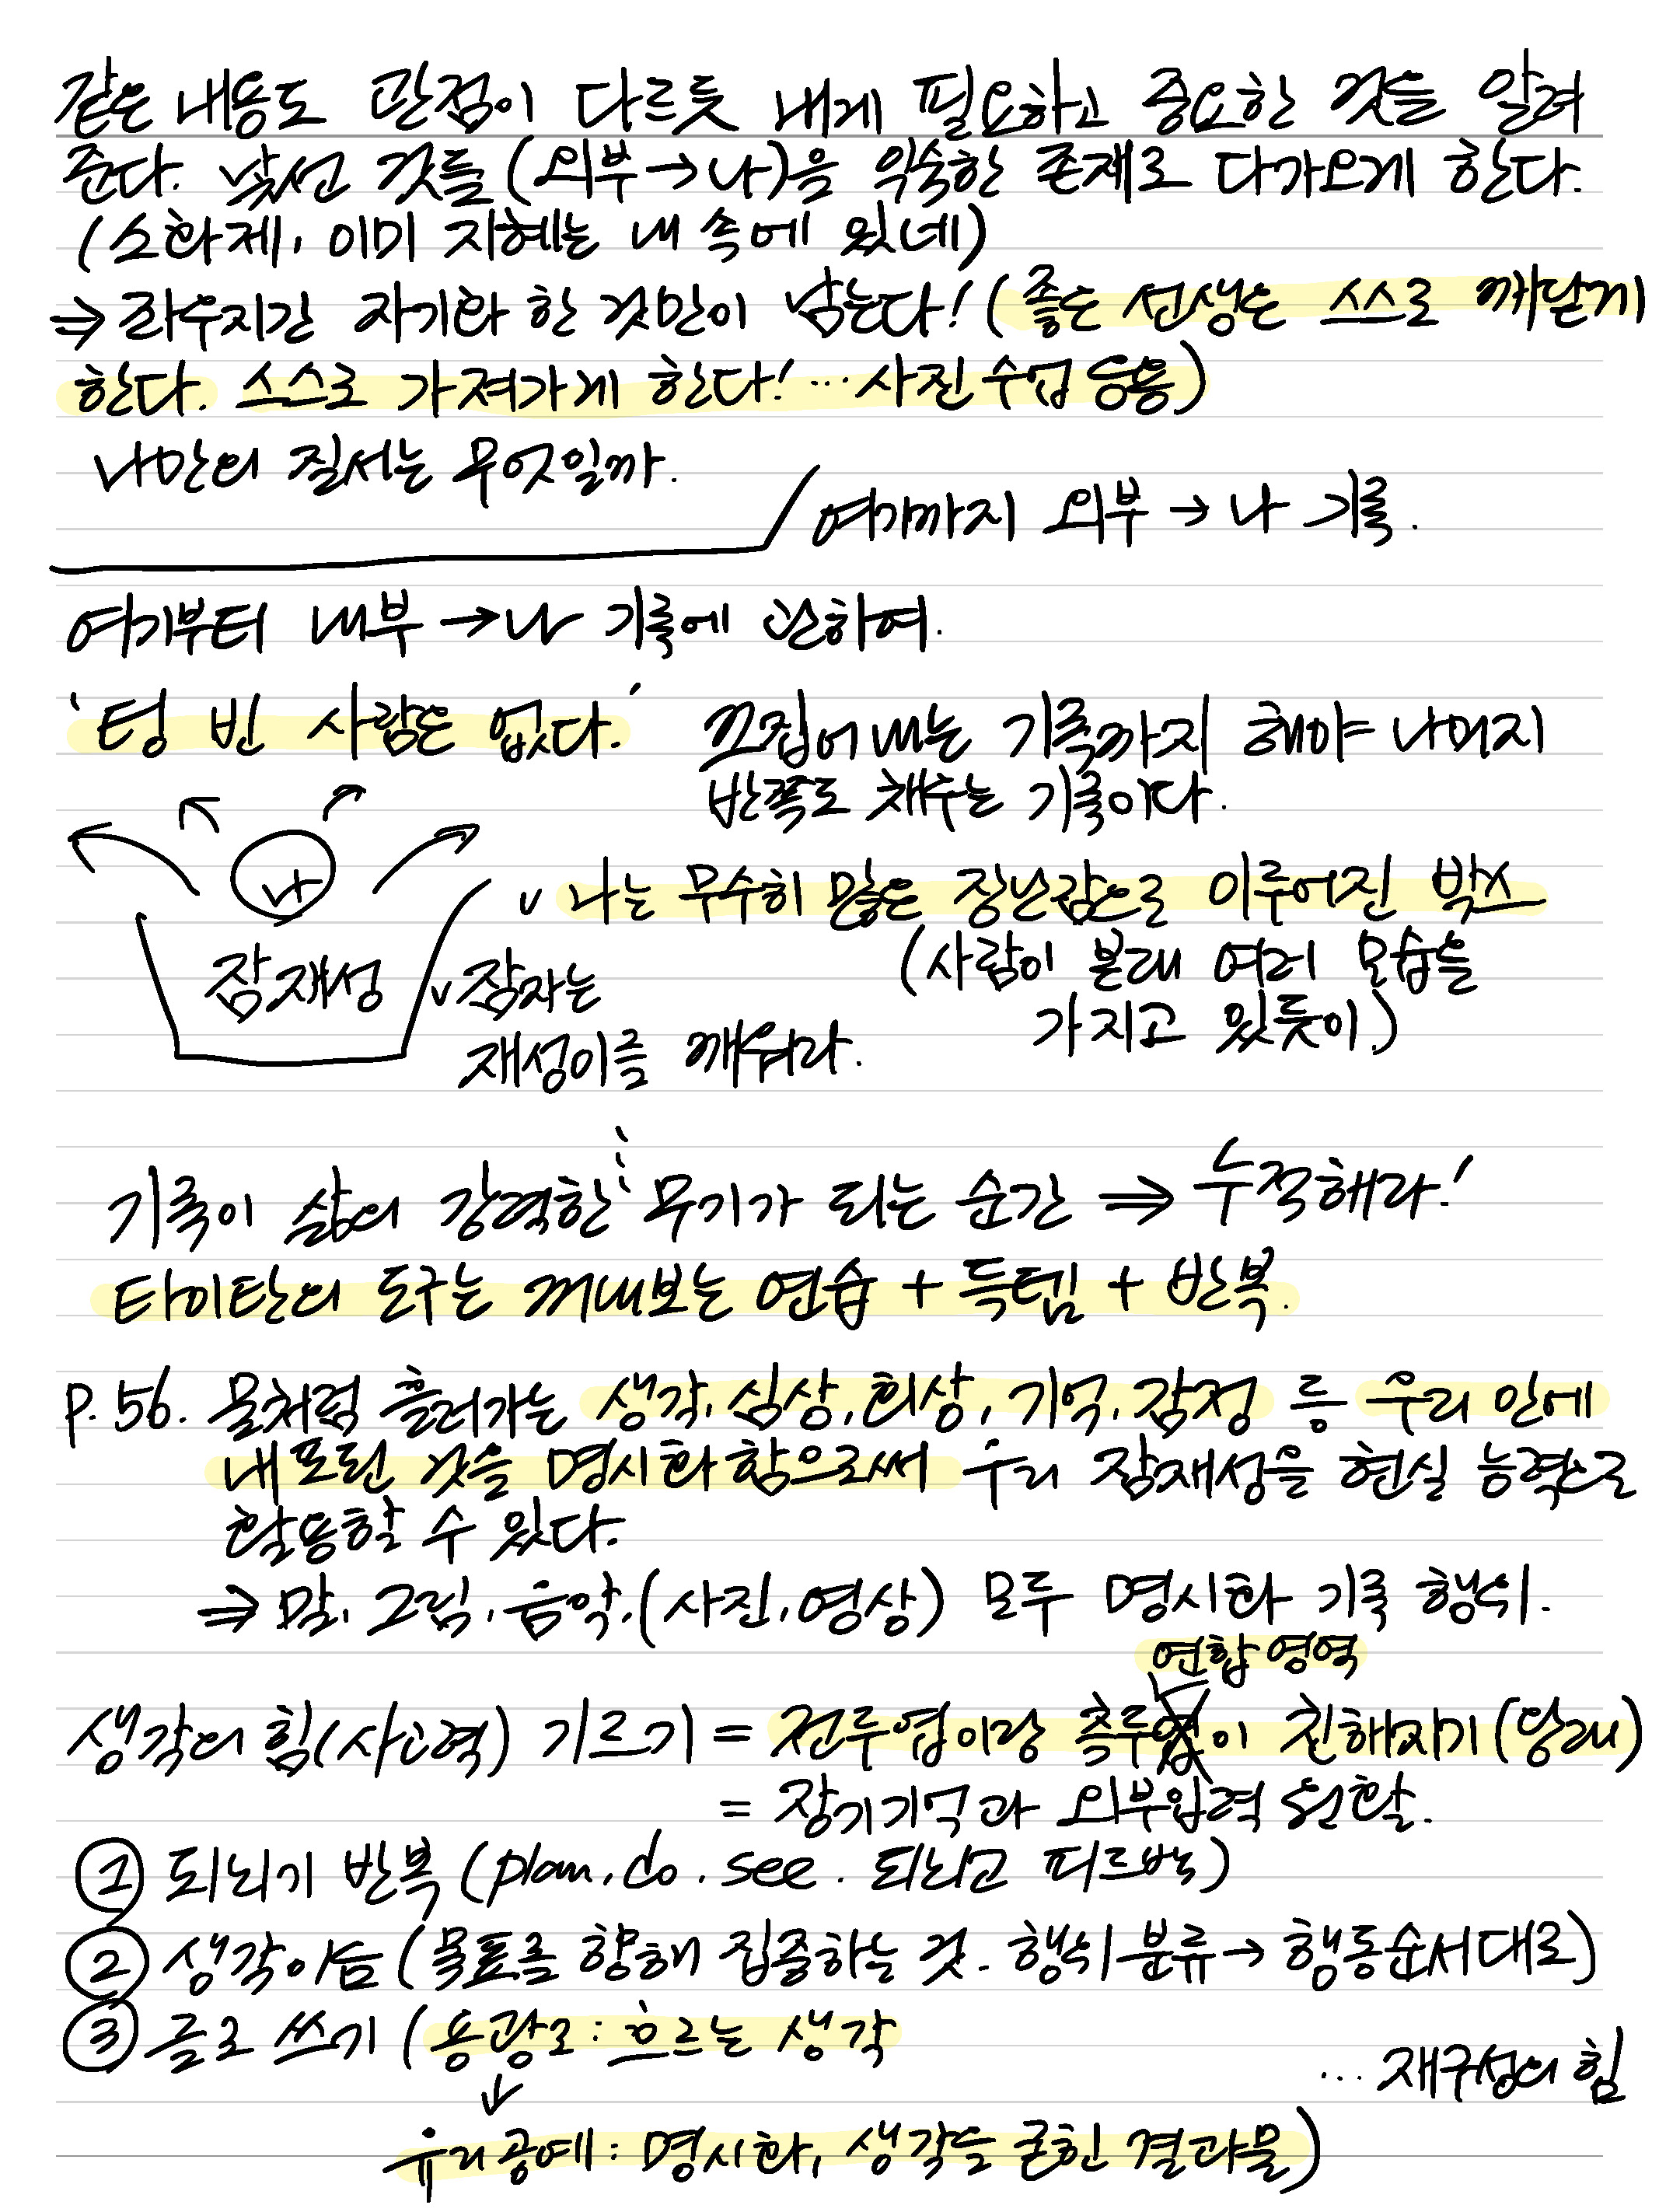 같은 내용도 관점이 다르듯 내게 필요하고 중요한 것들 알려
준다. 낯선 것들 (외부→나)을 익숙한 존재로 다가오게 한다.
(소화제, 이미 지혜는 내 속에 있네)
⇒ 라우지간 자기화 한 것만이 남는다! (좋은 선생은 스스로 깨닫게
한다. 스스로 가져가게 한다! … 사진 수업 응용)
나만의 질서는 무엇일까.
여기까지 외부 → 나 기록.
여기부터 내부 → 나 기록에 관하여.
'텅 빈 사람은 없다.' 끄집어내는 기록까지 해야 나머지
반쪽도 채우는 기록이다.
나
잠재성
v 나는 무수히 많은 장난감으로 이루어진 박스
(사람이 본래 여러 모습을
가지고 있듯이.)
v 잠자는
재성이를 깨워라.
기록이 삶의 강력한 무기가 되는 순간 ⇒ 누적해라!
타이탄의 도구는 꺼내보는 연습 + 득템 + 반복.
P. 56. 물처럼 흘러가는 생각, 심상, 회상, 기억, 감정 등 우리 안에
내포된 것을 명시화함으로써 우리 잠재성을 현실 능력으로
활용할 수 있다.
⇒ 말, 그림, 음악, (사진, 영상) 모두 명시화 기록 행위.
연합 영역
생각의 힘(사고력) 기르기 = 전두엽이랑 측두엽이 친해지기 (당려)
= 장기기억과 외부입력 원활.
① 되뇌기 반복 (plan. do. see. 되뇌고 피드백)
② 생각이음 (목표를 향해 집중하는 것. 행위 분류 → 행동순서대로)
③ 글로 쓰기 (용광로 : 흐르는 생각
↓
유리공예 : 명시화, 생각들 굳힌 결과물)
… 재구성의 힘